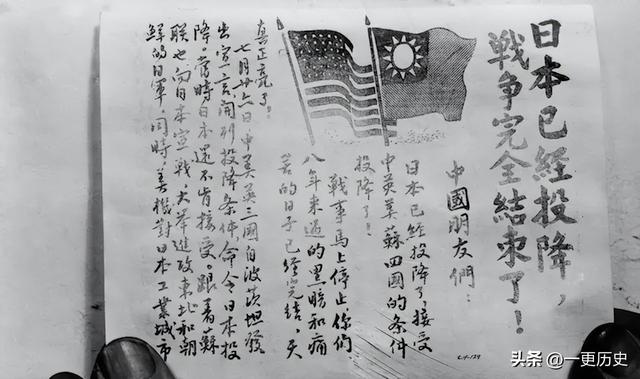 日本已经投降，
戰争完全結束了！
中國朋友們：
日本已经投降了，接受
中英美蘇四國的条件
投降了！
戰事馬上停止你們
八年来过的黑暗和痛
苦的日子已經完結，天
真正亮了。
七月廿六日中美英三國，自波茨坦發
出宣言開列投降条件命令日本投
降。當時日本還不肯接受。跟着蘇
联也向日本宣戰，大举進攻東北和朝
鮮的日軍。同時，美機對日本工業城市
C.H-129
头条 @一更历史